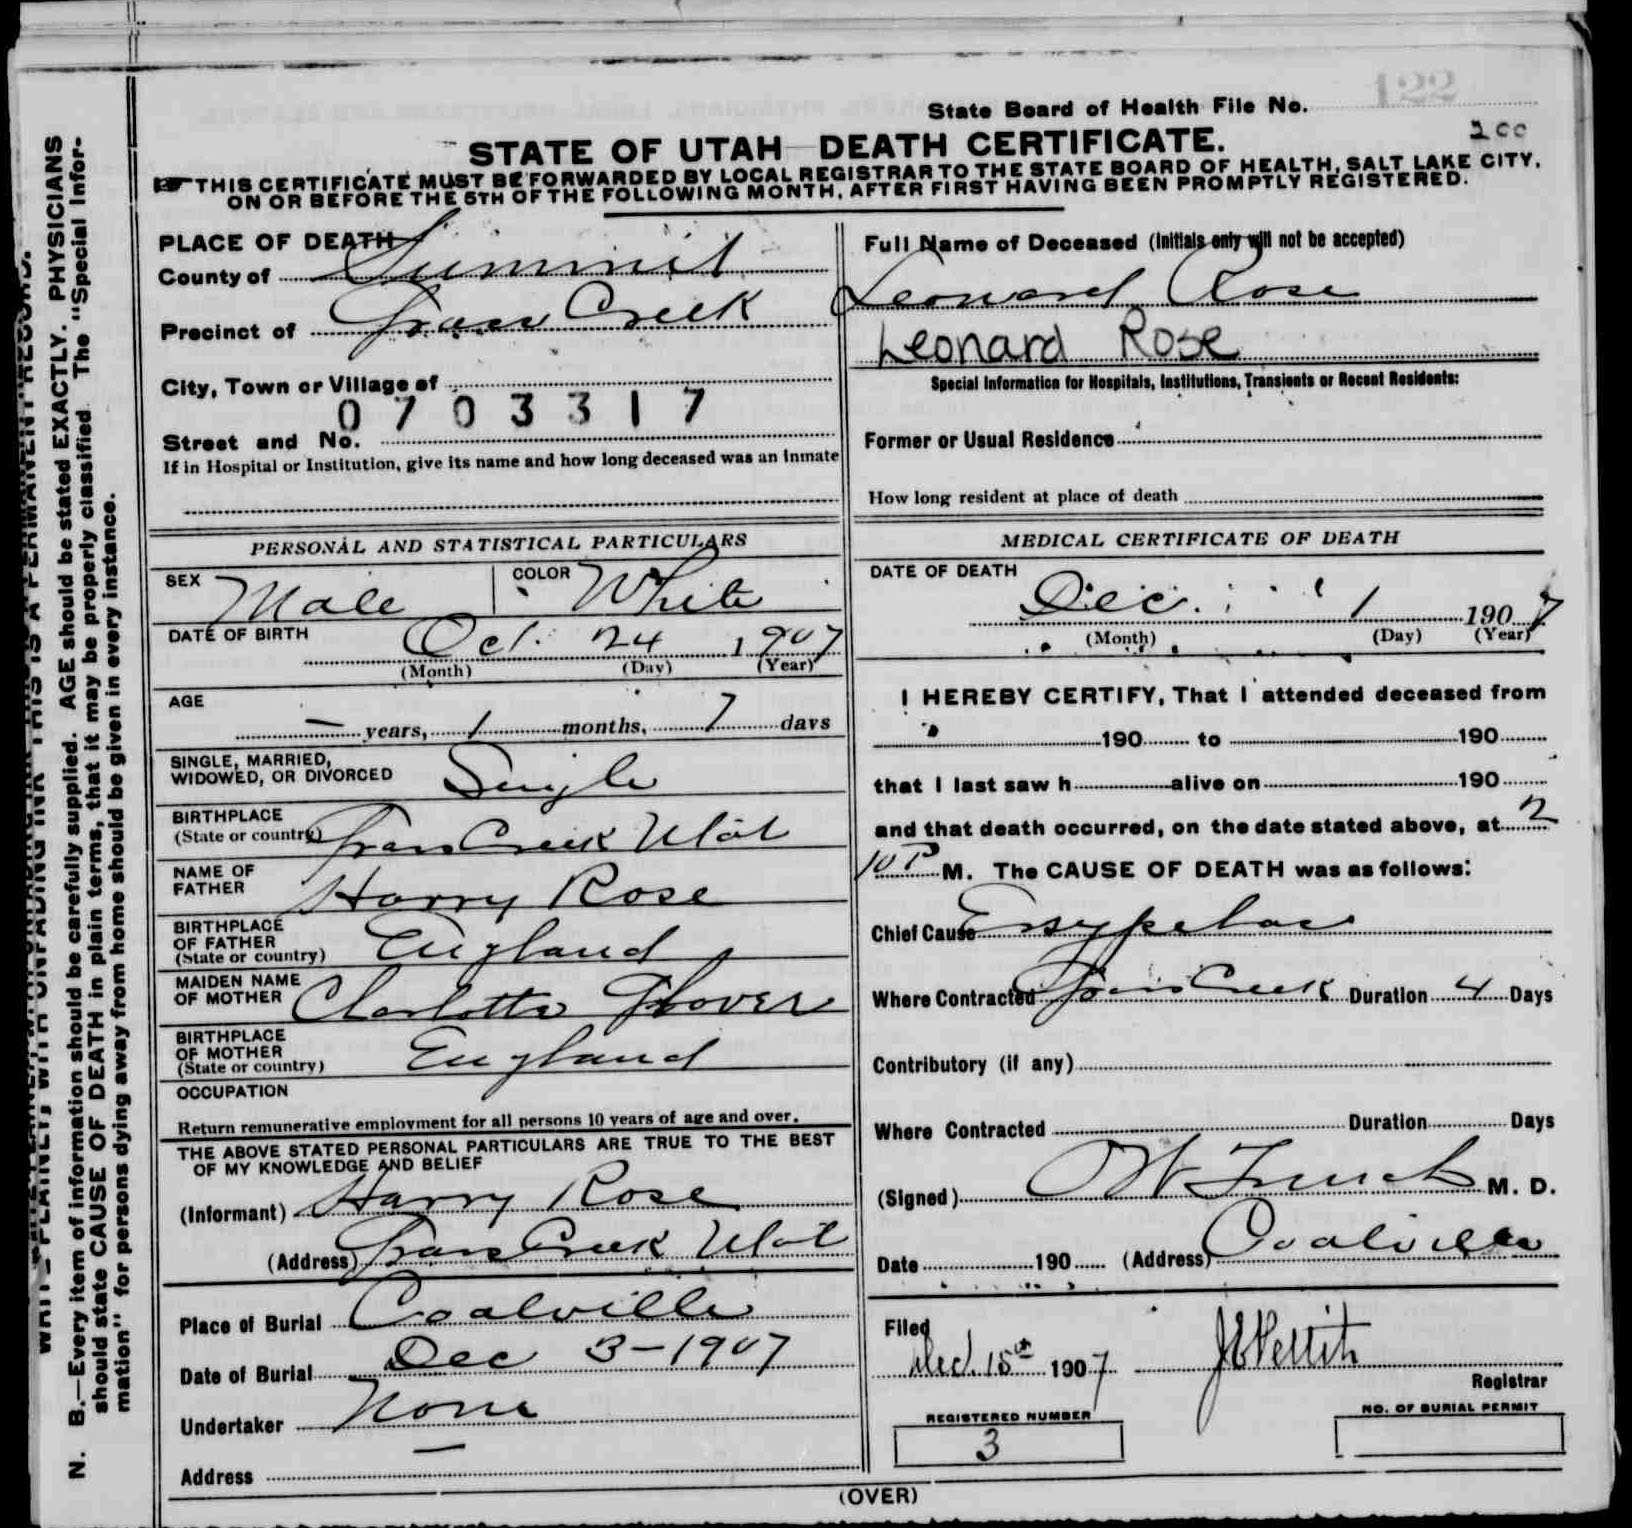 122
State Board of Health File No.
200
STATE OF UTAH DEATH CERTIFICATE.
THIS CERTIFICATE MUST BE FORWARDED BY LOCAL REGISTRAR TO THE STATE BOARD OF HEALTH, SALT LAKE CITY,
ON OR BEFORE THE 5TH OF THE FOLLOWING MONTH, AFTER FIRST HAVING BEEN PROMPTLY REGISTERED.
PLACE OF DEATH
County of Summit
Precinct of Grass Creek
City, Town or Village of
0703317
Street and No.
If in Hospital or Institution, give its name and how long deceased was an Inmate
PERSONAL AND STATISTICAL PARTICULARS
SEX Male COLOR White
DATE OF BIRTH Oct. 24 1907
(Month) (Day) (Year)
AGE
— years, 1 months, 7 days
SINGLE, MARRIED,
WIDOWED, OR DIVORCED Single
BIRTHPLACE
(State or country) Grass Creek Utah
NAME OF
FATHER Harry Rose
BIRTHPLACE
OF FATHER
(State or country) England
MAIDEN NAME
OF MOTHER Charlotte Glover
BIRTHPLACE
OF MOTHER
(State or country) England
OCCUPATION
Return remunerative employment for all persons 10 years of age and over.
THE ABOVE STATED PERSONAL PARTICULARS ARE TRUE TO THE BEST
OF MY KNOWLEDGE AND BELIEF
(Informant) Harry Rose
(Address) Grass Creek Utah
Place of Burial Coalville
Date of Burial Dec 3-1907
Undertaker None
Address —
Full Name of Deceased (Initials only will not be accepted)
Leonard Rose
Leonard Rose
Special Information for Hospitals, Institutions, Transients or Recent Residents:
Former or Usual Residence
How long resident at place of death
MEDICAL CERTIFICATE OF DEATH
DATE OF DEATH
Dec. 1 1907
(Month) (Day) (Year)
I HEREBY CERTIFY, That I attended deceased from
190 to 190
that I last saw h alive on 190
and that death occurred, on the date stated above, at 2
10 P M. The CAUSE OF DEATH was as follows:
Chief Cause Erysipelas
Where Contracted Grass Creek Duration 4 Days
Contributory (if any)
Where Contracted Duration Days
(Signed) M. D.
Date 190 (Address) Coalville
Filed
Decl. 15th 1907 J E Pettit
Registrar
REGISTERED NUMBER
3
NO. OF BURIAL PERMIT
(OVER)
N. B.—Every item of information should be carefully supplied. AGE should be stated EXACTLY. PHYSICIANS
should state CAUSE OF DEATH in plain terms, that it may be properly classified. The "Special Infor-
mation" for persons dying away from home should be given in every instance.